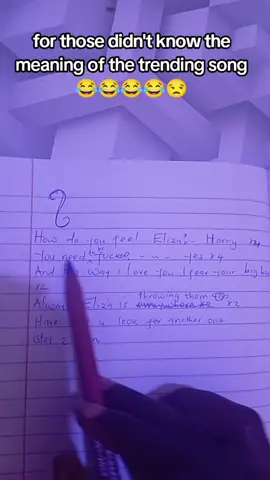 for those didn't know the
meaning of the trending song
😂😂😂😂😒
How do you feel Elian? - Horny x4
You need to be fucked - - - yes x4
And way i love you I fear your big
x2
Always Elian is throwing them x2
Have look for another one